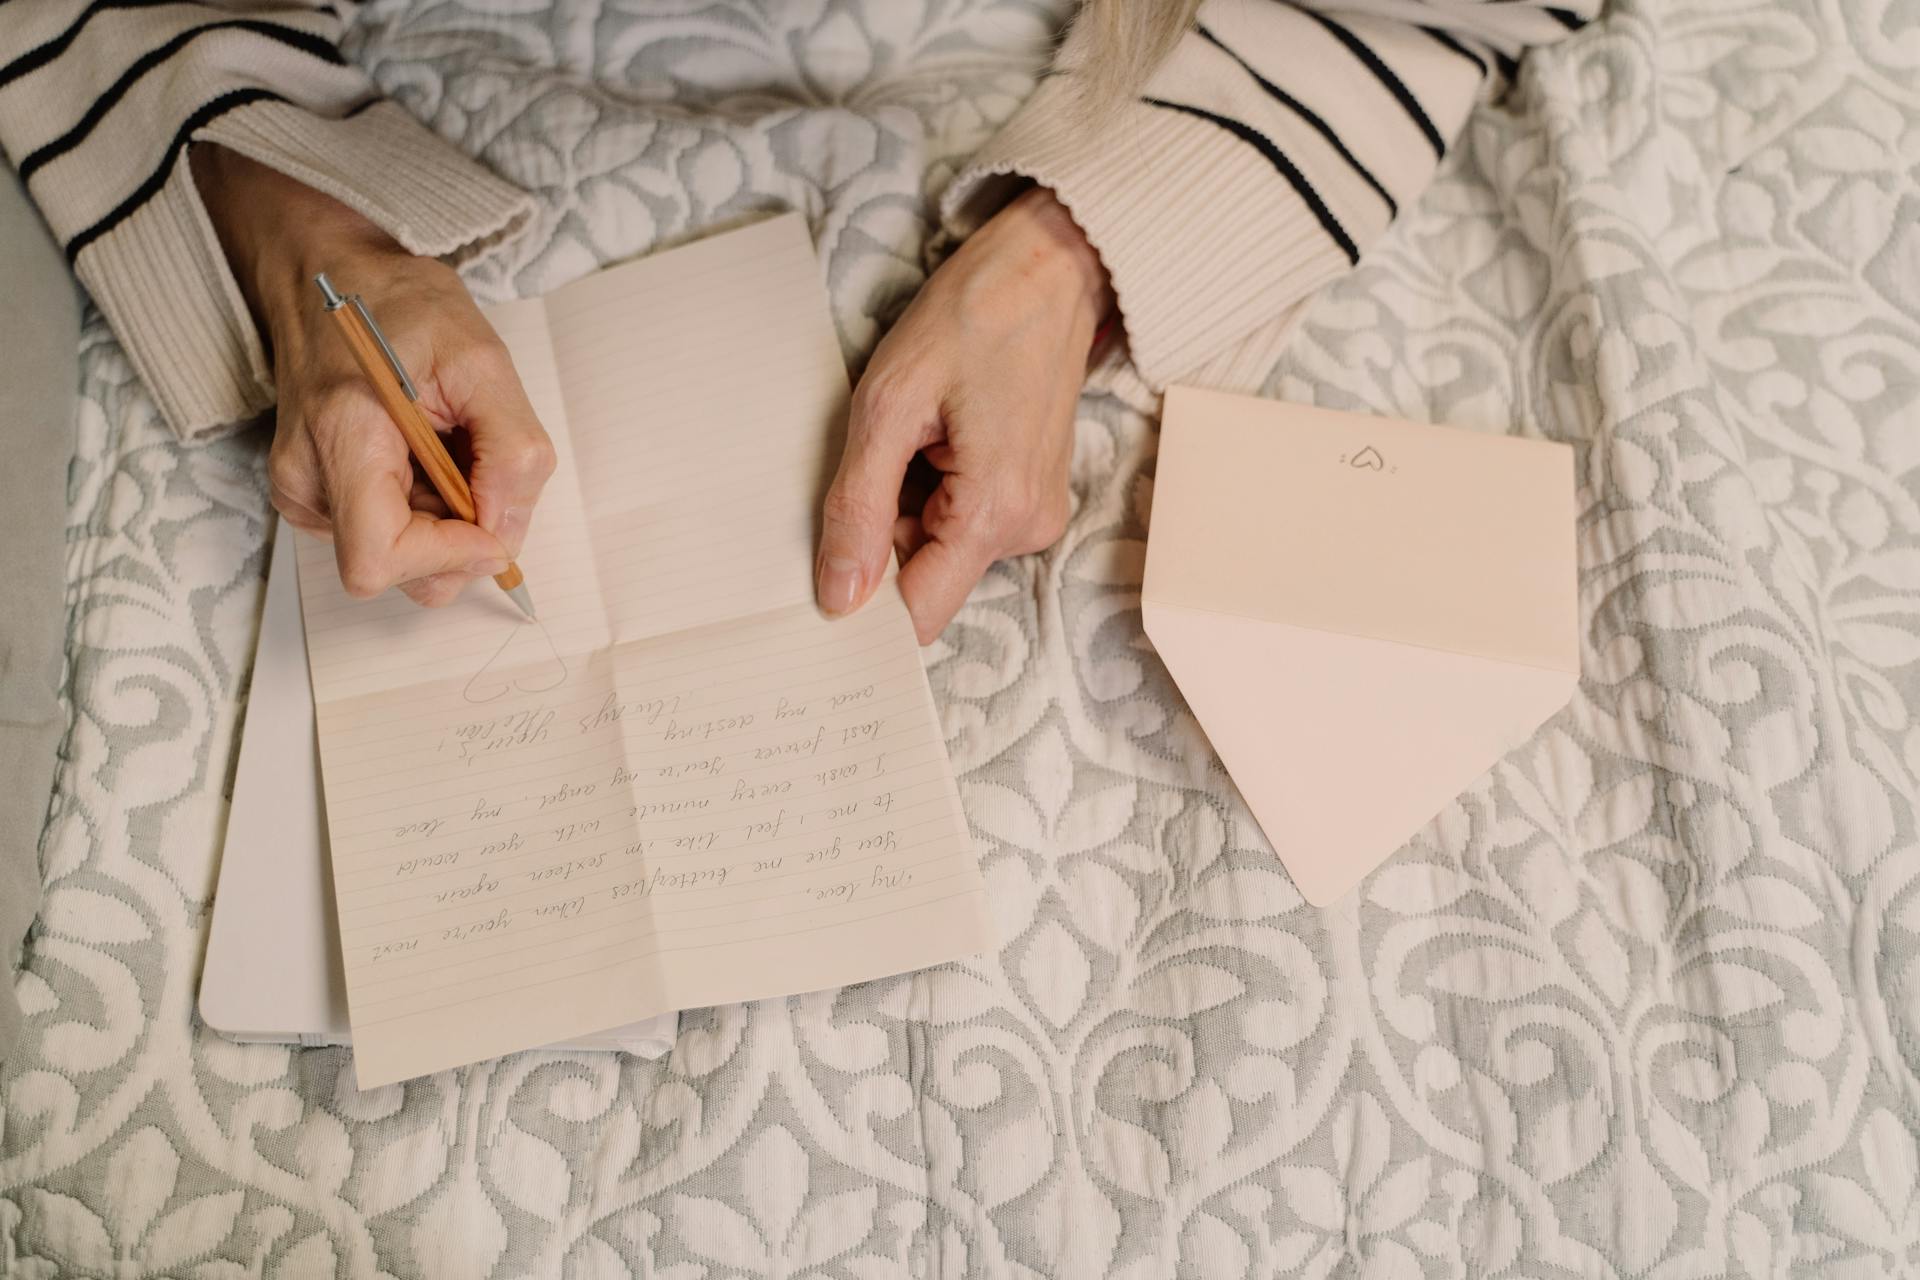 My love,
You give me butterflies when you're next
to me i feel like i'm sexteen again
I wish every minute with you would
last forever You're my angel, my love
and my destiny.
Always your's